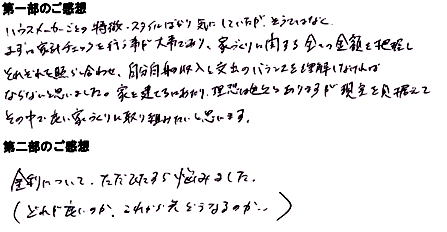 第一部のご感想
ハウスメーカーごとの特徴、スタイルばかり気にしていたが、そうではなく、
まずは家計チェックを行う事が大事であり、家づくりに関する全ての金額を把握し
それぞれを照らし合わせ、自分自身の収入と支出のバランスを理解しなければ
ならないと思いました。家を建てるにあたり、理想は色々とありますが現実を見据えて
その中で良い家づくりに取り組みたいと思います。
第二部のご感想
金利について、ただひたすら悩みました。
(どれが良いのか、これから先どうなるのか…)